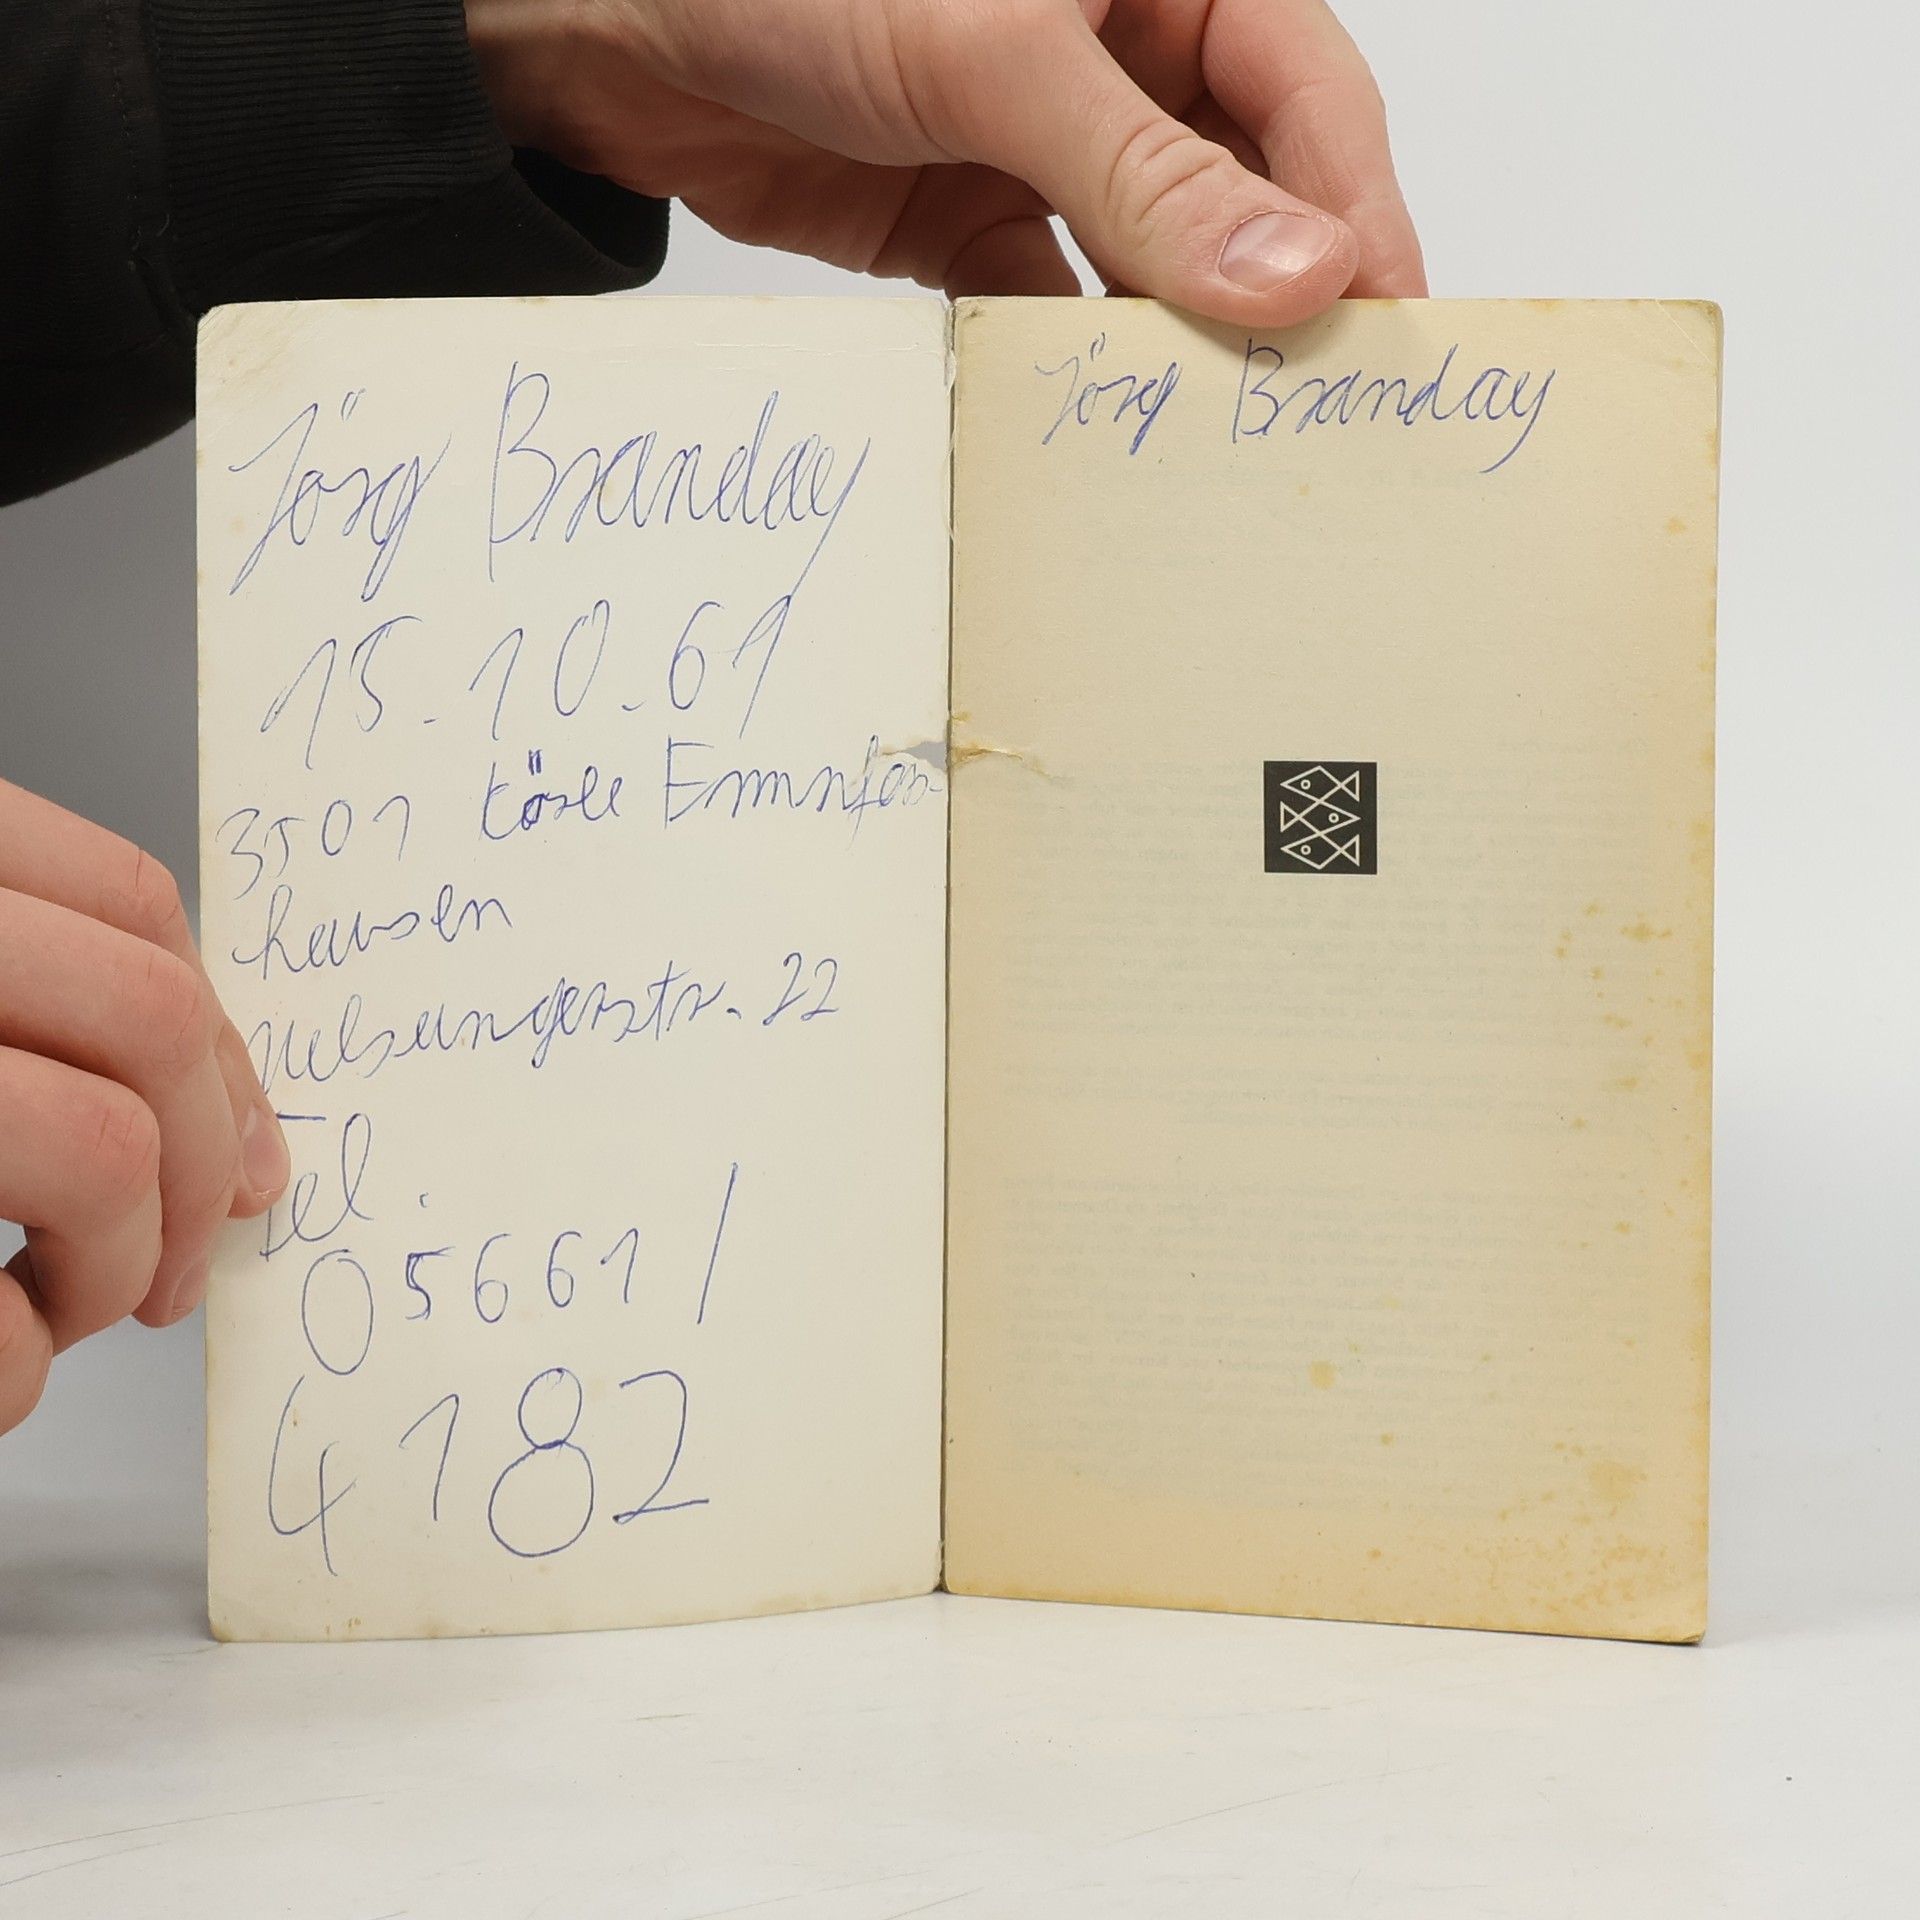 Jörg Branday
15.10.61
3501 Körle Emmfas-
hausen
Melsungerstr. 22
Tel.
05661/
4182
Jörg Branday